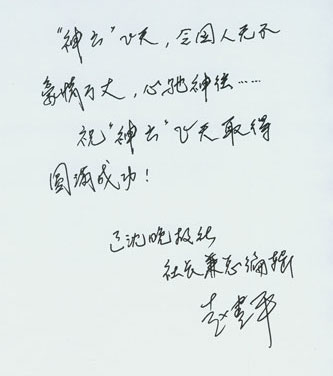 “神六”飞天，令国人无不
豪情万丈，心驰神往……
祝“神六”飞天取得
圆满成功！
辽沈晚报社
社长兼总编辑